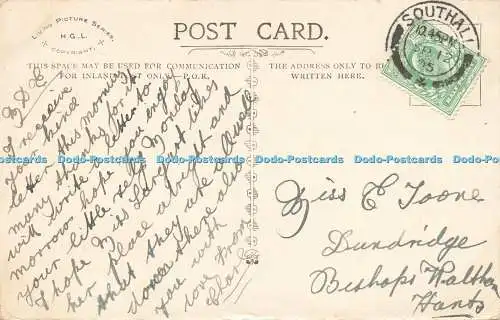 LIVING PICTURE SERIES.
H.G.L.
COPYRIGHT.
POST CARD.
THIS SPACE MAY BE USED FOR COMMUNICATION
FOR INLAND POST ONLY. P.O.R.
THE ADDRESS ONLY TO BE
WRITTEN HERE.
SOUTHALL
10.45PM
SP 12
05
I receive
your kind
letter this morning
many thanks for it
will write a letter to
morrow hope you enjoy
your little rest Monday
I hope Miss likes
her place alright and
that they are quite
down there also
you with
love from
Clara
Miss E Toone
Dundridge
Bishops Waltham
Hants
Dodo-Postcards Dodo-Postcards Dodo-Postcards Dodo-Postcards Dodo-Postcards
Dodo-Postcards Dodo-Postcards Dodo-Postcards Dodo-Postcards Dodo-Postcards